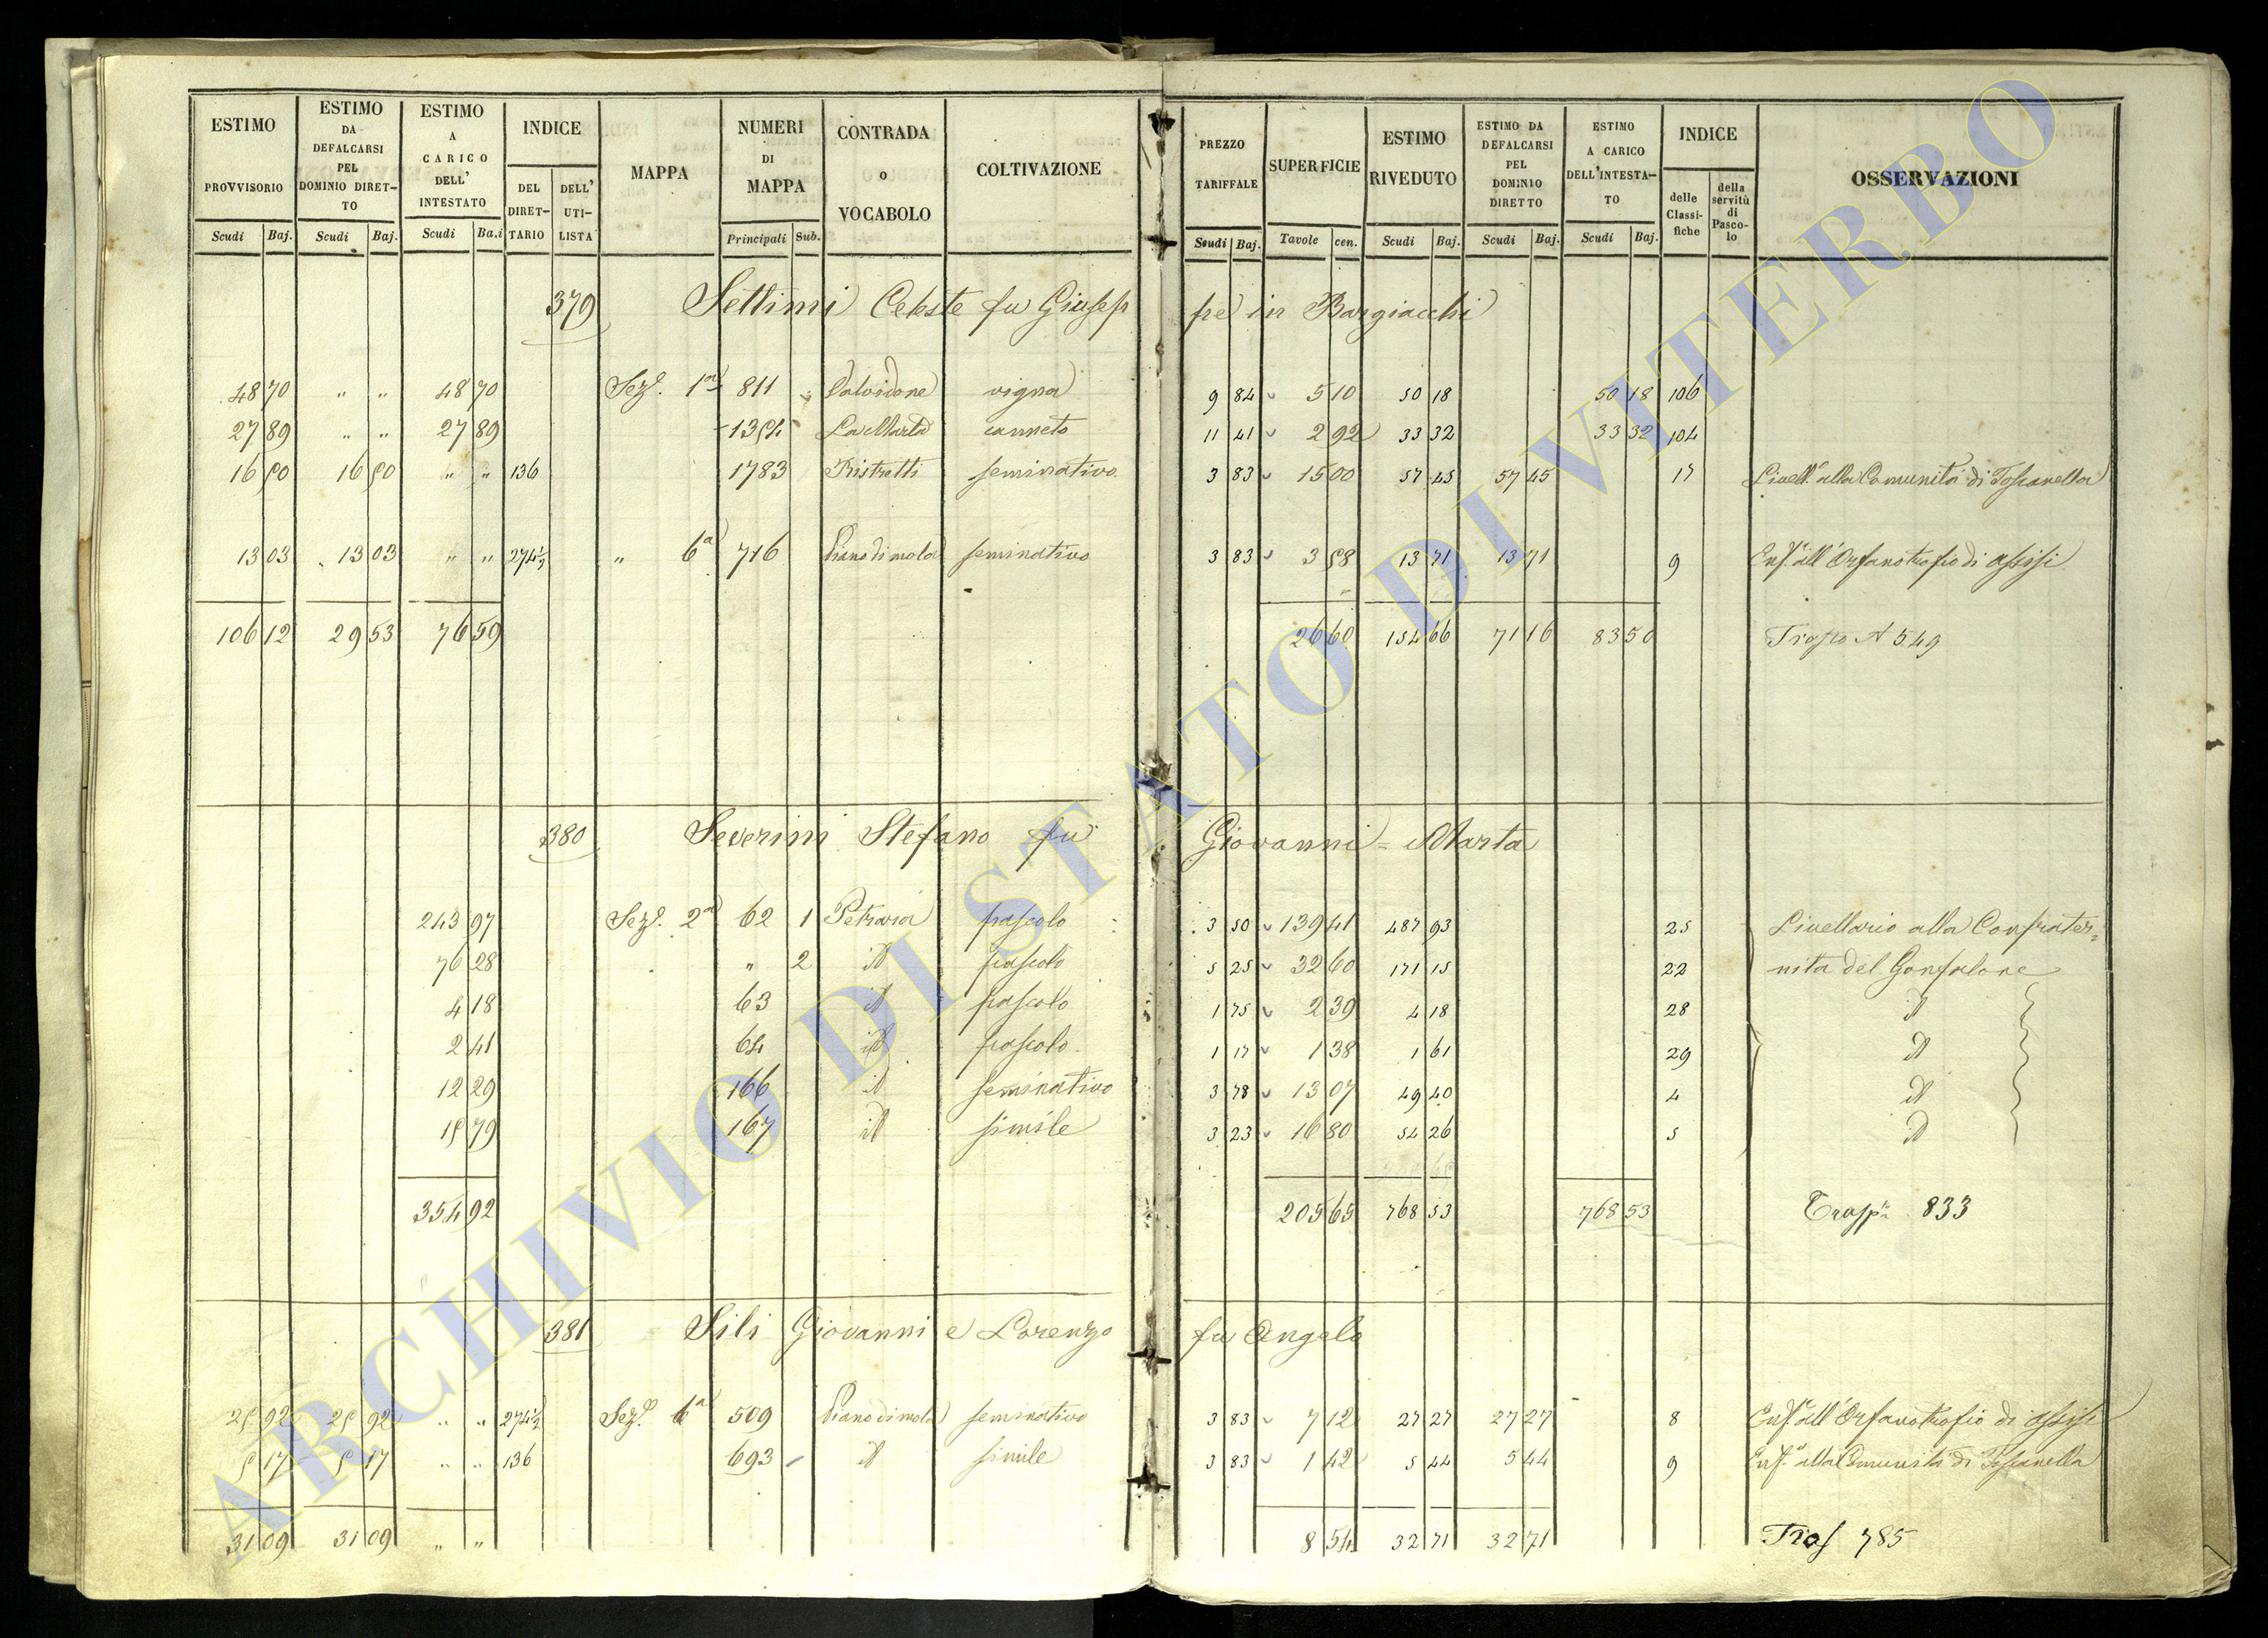 ESTIMO PROVVISORIO | ESTIMO DA DEFALCARSI PEL DOMINIO DIRETTO | ESTIMO A CARICO DELL' INTESTATO | INDICE DEL DIRETTARIO | DELL' UTILISTA | MAPPA | NUMERI DI MAPPA | CONTRADA o VOCABOLO | COLTIVAZIONE | PREZZO TARIFFALE | SUPERFICIE | ESTIMO RIVEDUTO | ESTIMO DA DEFALCARSI PEL DOMINIO DIRETTO | ESTIMO A CARICO DELL'INTESTATO | INDICE delle Classifiche | della servitù di Pascolo | OSSERVAZIONI
Scudi Baj. | Scudi Baj. | Scudi Ba.i | Principali Sub. | Scudi Baj. | Tavole cen. | Scudi Baj. | Scudi Baj. | Scudi Baj.
379 Settimi Celeste fu Giusep pe in Bargiacchi
48 70 " " 48 70 Sez.e 1a 811 Valvidone vigna 9 84 5 10 50 18 50 18 106
27 89 " " 27 89 1354 La Marta canneto 11 41 2 92 33 32 33 32 104
16 50 16 50 " " 136 1783 Ristretti seminativo 3 83 15 00 57 45 57 45 17 Livell.o alla Comunità di Toscanella
13 03 13 03 " " 274½ " 6a 716 Piano di mola seminativo 3 83 3 58 13 71 13 71 9 Enf.a all'Orfanotrofio di Assisi
106 12 29 53 76 59 26 60 154 66 71 16 83 50 Traspo A 549
380 Severini Stefano fu Giovanni = Marta
243 97 Sez.e 2a 62 1 Petrara pascolo 3 50 139 41 487 93 25 Livellario alla Confrater=
76 28 " 2 id pascolo 5 25 32 60 171 15 22 nita del Gonfalone
4 18 63 id pascolo 1 75 2 39 4 18 28 id
2 41 64 id pascolo 1 17 1 38 1 61 29 id
12 29 166 id seminativo 3 78 13 07 49 40 4 id
15 79 167 id simile 3 23 16 80 54 26 5 id
354 92 205 65 768 53 768 53 Trasp.to 833
381 Sili Giovanni e Lorenzo fu Angelo
25 92 25 92 " " 274½ Sez.e 6a 509 Piano di mola seminativo 3 83 7 12 27 27 27 27 8 Enf.a all'Orfanotrofio di Assisi
5 17 5 17 " " 136 693 id simile 3 83 1 42 5 44 5 44 9 Enf.a alla Comunità di Toscanella
31 09 31 09 " " 8 54 32 71 32 71 Tras 785
ARCHIVIO DI STATO DI VITERBO